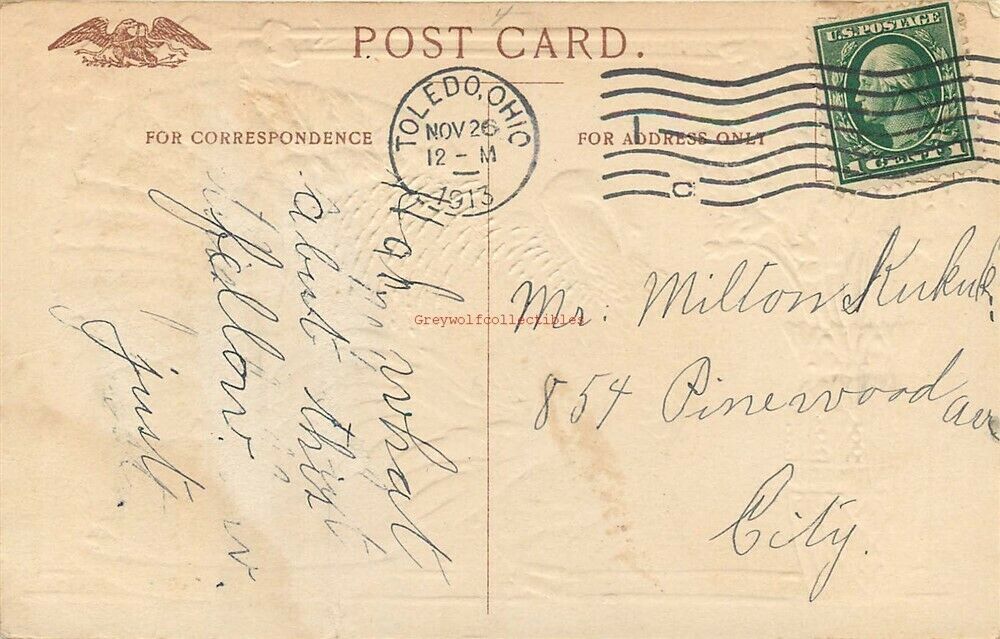 POST CARD.
U.S. POSTAGE
1 CENTS 1
TOLEDO, OHIO
NOV 26
12 - M
1913
FOR CORRESPONDENCE
FOR ADDRESS ONLY
what
about this
fellow.
just
Greywolfcollectibles
Mr. Milton
854 Pinewood Ave
City.